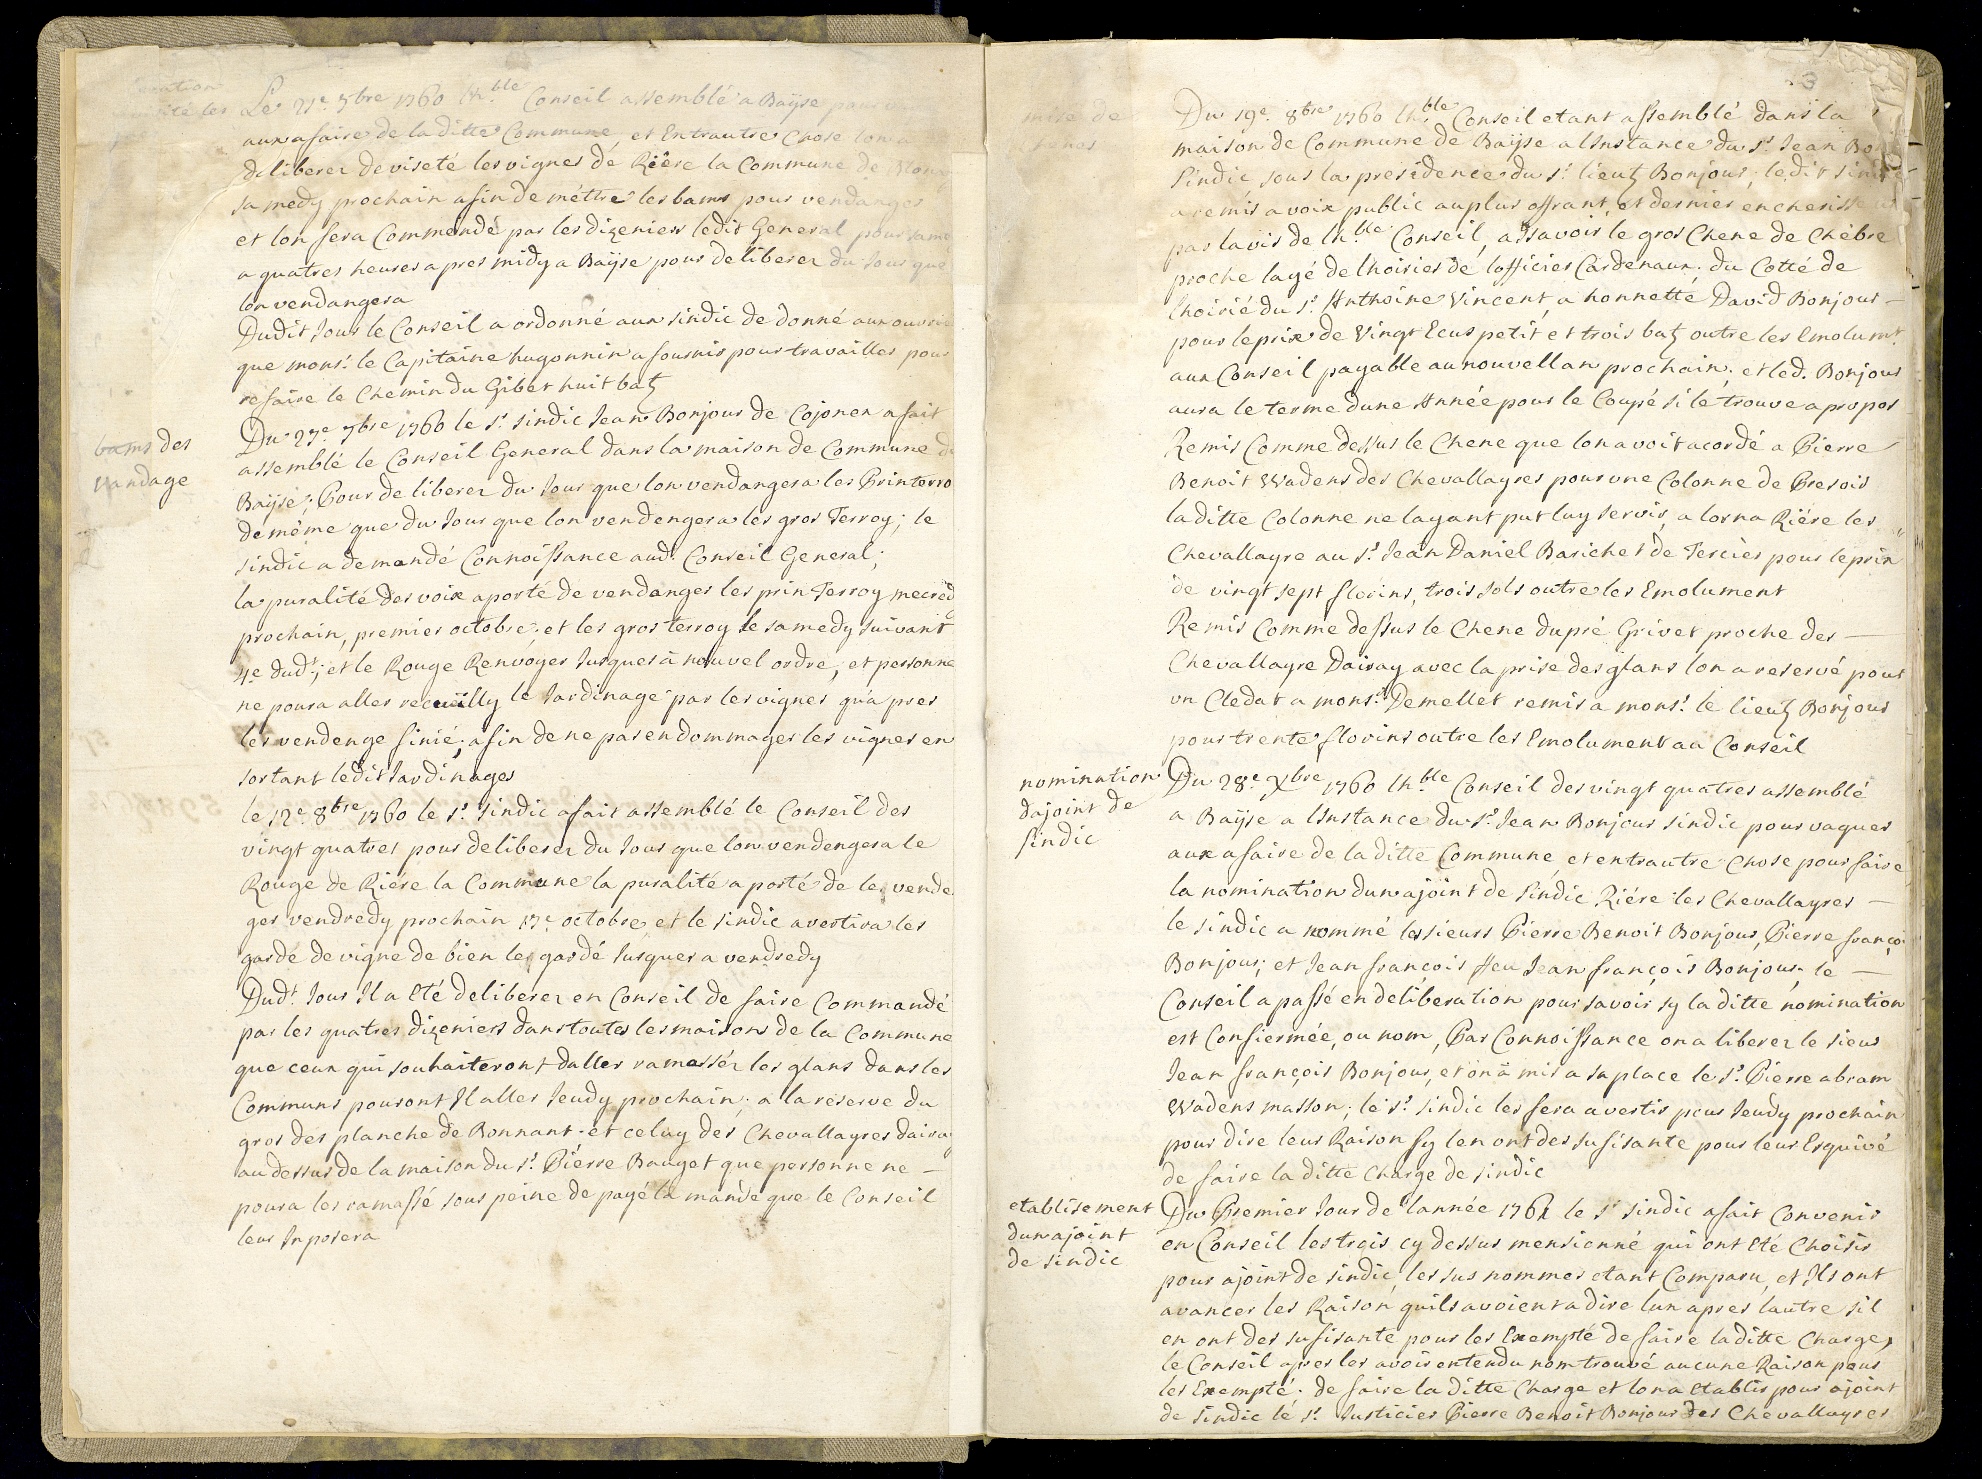 Le 21e 7bre 1760 lh.ble Conseil assemblé a Baÿse pour
aux afaire de la ditte Commune, et Entrautre Chose lon a
deliberer de viseté les vignes de Riére la Commune de Blonay
samedy prochain afin de méttre les bams pour vendanger
et lon fera Commendé par les dizeniers ledit General pour same
a quatres heures apres midy a Baÿse pour deliberer du Jour que
lon vendangera
Dudit Jour le Conseil a ordonné aux sindic de donné aux ouvrie
que mons.r le Capitaine hugonnin a fournir pour travailler pour
refaire le Chemin du Gibet huit batz
bams des
vandage
Du 27e 7bre 1760 le s.r sindic Jean Bonjour de Cojonex a fait
assemblé le Conseil General dans la maison de Commune de
Baÿse; Pour deliberer du Jour que lon vendangera les Printerro
de même que du Jour que lon vendengera les gros Terroy; le
sindic a demandé Connoissance aud. Conseil General;
la puralité des voix a porté de vendanger les prin Terroy mecred
prochain, premier octobre, et les gros terroy le samedy suivant
4e dud.t; et le Rouge Renvoyer Jusques à nouvel ordre, et personne
ne poura aller recuilly le Jardinage par les vignes qu'a pres
les vendenge finié; afin de ne pas endommager les vignes en
sortant ledit Jardinages
le 12e 8bre 1760 le s.r sindic a fait assemblé le Conseil des
vingt quatres pour deliberer du Jour que lon vendengera le
Rouge de Riére la Commune la puralité a porté de les vende
ger vendredy prochain 17e octobre, et le sindic avertira les
gardé de vigne de bien les gardé Jusques a vendredy
Dud.t Jour Il a Eté deliberer en Conseil de faire Commandé
par les quatres dizeniers dans toutes les maisons de la Commune
que ceux qui souhaiteront daller ramassér les glans dans les
Communs pouront Il aller Jeudy prochain; a la reserve du
gros des planche de Bonnant et celuy des Chevallayres dairay
au dessus de la maison du s.r Pierre Bauget que personne ne
poura les ramassé sous peine de payé la mande que le Conseil
leur Inposera
mise de
chenes
Du 19e 8bre 1760 lh.ble Conseil etant assemblé dans la
maison de Commune de Baÿse a lInstance du s.r Jean Bon
sindic sous la presidence du s.r lieutz Bonjour; ledit sindic
a remis a voix public au plus offrant, et dernier encherisseur
par lavis de lh.ble Conseil, assavoir le gros Chene de Chèbre
proche layé de lhoiries de lofficier Cardenaux. du Cotté de
lhoirié du s.r Anthoine Vincent, a honnetté David Bonjour
pour le prix de Vingt Ecus petit, et trois batz outre les Emolumt.
aux Conseil payable au nouvellan prochain; et led. Bonjour
aura le terme dune Année pour le Coupé si le trouve a propos
Remis Comme dessus le Chene que lon avoit acordé a Pierre
Benoit Wadens des Chevallayres pour une Colonne de Presoir
laditte Colonne ne layant put luy servir, a lorna Riére les
Chevallayre au s.r Jean Daniel Barichet de Tercier pour leprix
de vingt sept florins, trois sols outre les Emolument
Remis Comme dessus le Chene du pré Grivet proche des
Chevallayre Dairay avec la prise des glans lon a reservé pour
un Cledat a mons.r Demellet remis a mons.r le lieutz Bonjour
pour trente florins outre les Emolument au Conseil
nomination
dajoint de
sindic
Du 28e Xbre 1760 lh.ble Conseil des vingt quatres assemblé
a Baÿse a lInstance du s.r Jean Bonjour sindic pour vaquer
aux afaire de la ditte Commune, et entrautre Chose pour faire
la nomination dun ajoint de sindic Riére les Chevallayres
le sindic a nommé les sieurs Pierre Benoit Bonjour, Pierre françoi
Bonjour; et Jean françois feu Jean françois Bonjour, le
Conseil a passé en deliberation pour savoir sy la ditte nomination
est Confiermée, ou nom, Par Connoissance on a liberer le sieur
Jean françois Bonjour, et on à mis a sa place le s.r Pierre abram
Wadens masson; le s.r sindic les fera avertir pour Jeudy prochain
pour dire leurs Raison sy len ont des sufisante pour leur Esquivé
de faire la ditte Charge de sindic
etablisement
dun ajoint
de sindic
Du Premier Jour de lannée 1761 le s.r sindic a fait Convenir
en Conseil les trois cy dessus mensionné qui ont Eté Choisir
pour ajoint de sindic, les sus nommes etant Comparu, et Ils ont
avancer les Raison quils avoient a dire lun apres lautre sil
en ont des sufisante pour les Exempté de faire laditte Charge,
le Conseil apres les avoir entendu nom trouvé aucune Raison pour
les Exempté de faire la ditte Charge et lon a Etablir pour ajoint
de sindic lé s.r Justicier Pierre Benoit Bonjour des Chevallayres